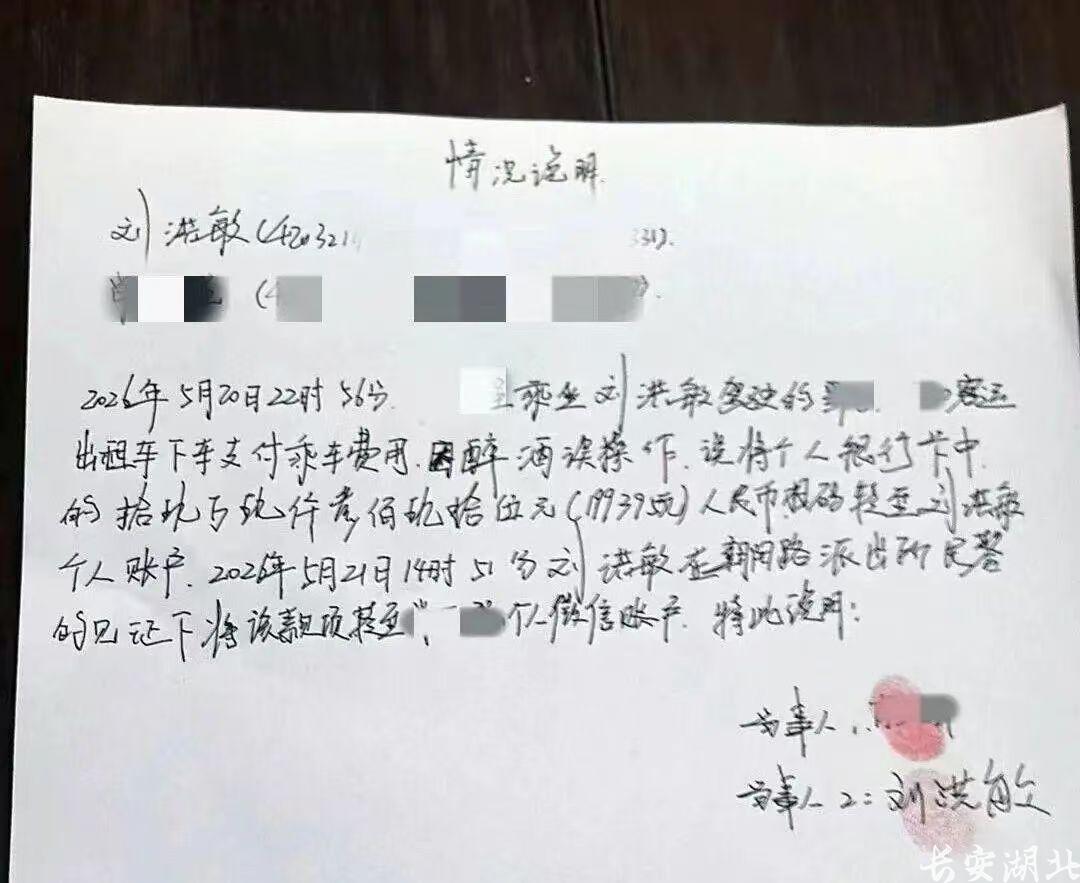 情况说明
刘洪敏(420321 331).
(4 ).
2026年5月20日22时56分. 乘坐刘洪敏驾驶的 客运
出租车下车支付乘车费用.因醉酒误操作.误将个人银行卡中
的拾玖万玖仟叁佰玖拾伍元(199395元)人民币扫码转至刘洪敏
个人账户.2026年5月21日14时51分刘洪敏在朝阳路派出所民警
的见证下将该款项转至 个人微信账户.特此说明:
当事人.
当事人2:刘洪敏
长安湖北